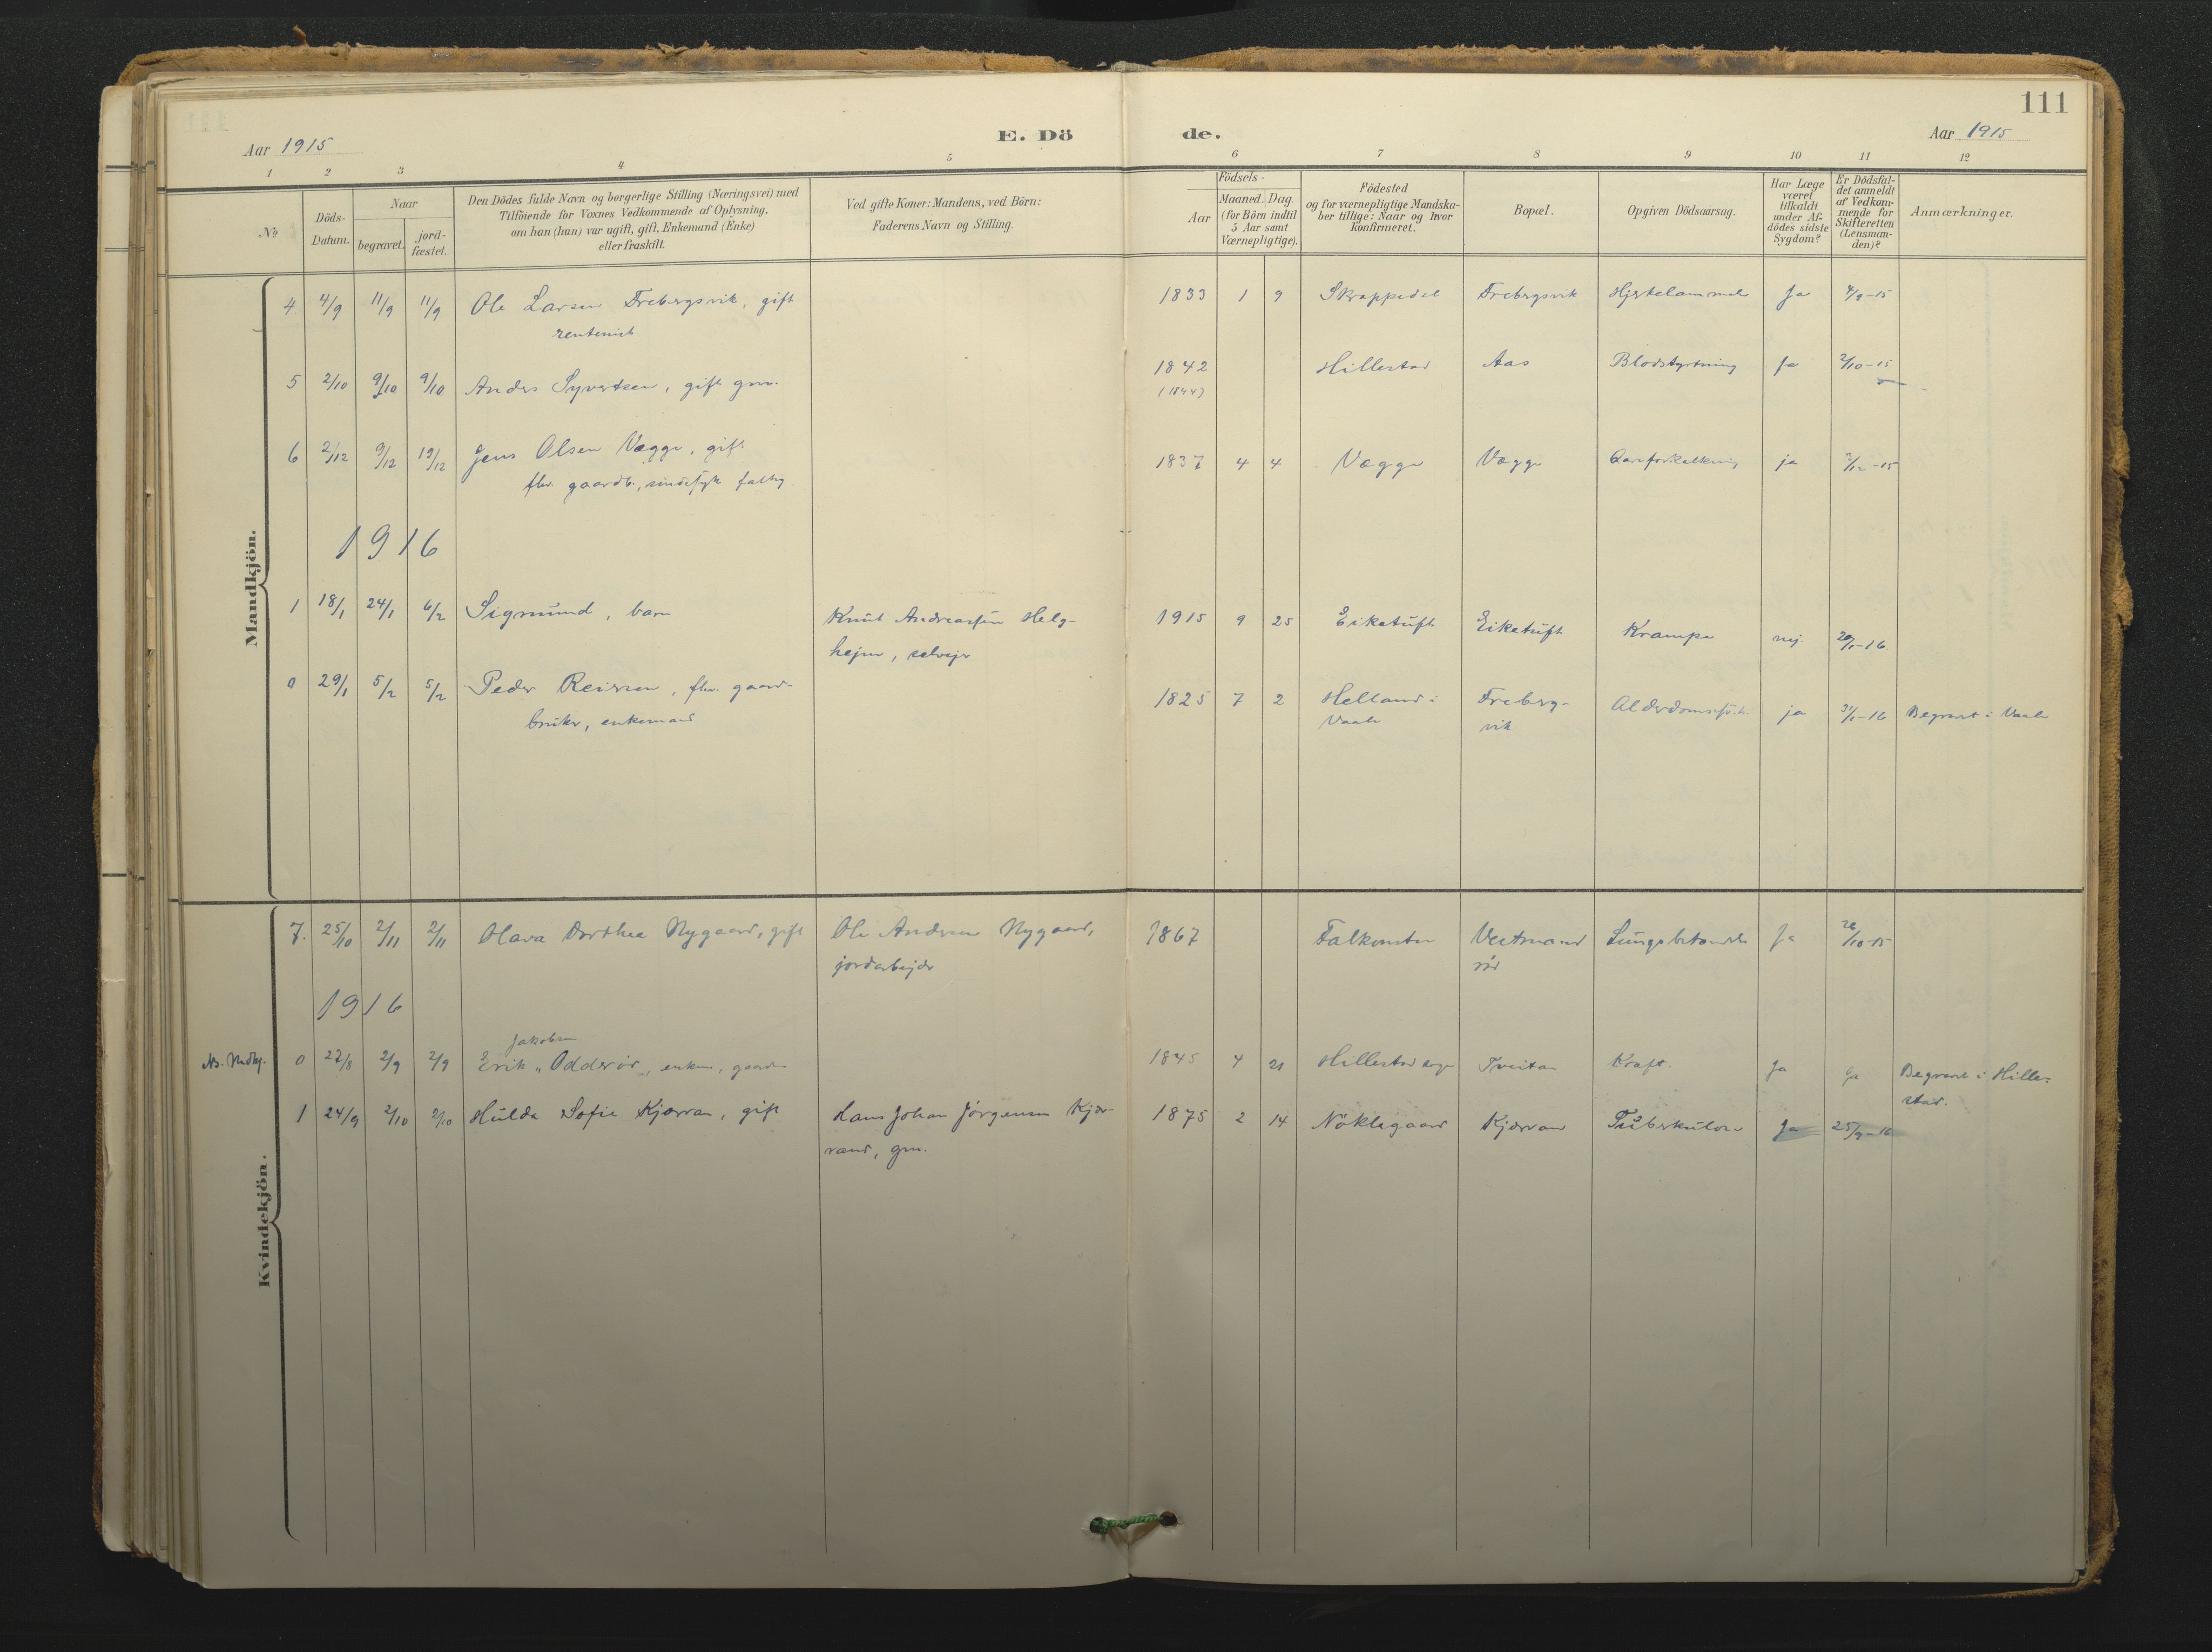 111
Aar 1915
E. Dö de.
Aar 1915
1 2 3 4 5 6 7 8 9 10 11 12
No
Döds-Datum.
Naar
begravet.
jord-fæstet.
Den Dödes fulde Navn og borgerlige Stilling (Næringsvei) med
Tilföiende for Voxnes Vedkommende af Oplysning,
om han (hun) var ugift, gift, Enkemand (Enke)
eller fraskilt.
Ved gifte Koner: Mandens, ved Börn:
Faderens Navn og Stilling.
Födsels-
Aar
Maaned. Dag.
(for Börn indtil
5 Aar samt
Værnepligtige).
Födested
og for værnepligtige Mandska-
ber tillige: Naar og hvor
Konfirmeret.
Bopæl.
Opgiven Dödsaarsag.
Har Læge
været
tilkaldt
under Af-
dödes sidste
Sygdom?
Er Dödsfal-
det anmeldt
af Vedkom-
mende for
Skifteretten
(Lensman-
den)?
Anmærkninger.
Mandkjön.
4 4/9 11/9 11/9 Ole Larsen Frebergsvik, gift 1833 1 9 Skroppedal Frebergsvik Hjertelammelse Ja 4/9-15
rentenist
5 2/10 9/10 9/10 Anders Syvertsen, gift gm. 1842 Hillestad Aas Blodstyrtning Ja 2/10-15
(1844)
6 2/12 9/12 19/12 Jens Olsen Vægge, gift 1837 4 4 Vægge Vægge Aareforkalkning ja 3/12-15
flv. gaardb., sindssyk fattig
1916
1 18/1 24/1 6/2 Sigmund, barn Knut Andreassen Helg- 1915 9 25 Eiketuft Eiketuft Krampe nej 20/1-16
hejm, selvejer
0 29/1 5/2 5/2 Peder Reiersen, flv. gaard- 1825 7 2 Helland i Freberg- ja 31/1-16 Begravet i Vaale
bruker, enkemand Vaale vik
Kvindekjön.
7. 25/10 2/11 2/11 Olava Dorthea Nygaard, gift Ole Andersen Nygaard, 1867 Falkensten Vestmand Lungebetændelse Ja 26/10-15
jordarbejder rød
1916
Jakobsen
Nb. Mdkj. 0 27/8 2/9 2/9 Erik Odderød, enkem., gaardm 1845 4 21 Hillestad sogn Tveitan Kræft. Ja Ja Begravet i Hille-
stad.
1 24/9 2/10 2/10 Hulda Sofie Kjærran, gift Hans Johan Jörgensen Kjær- 1875 2 14 Nöklegaard Kjærran Tuberkulose Ja 25/9-16
rand, gm.